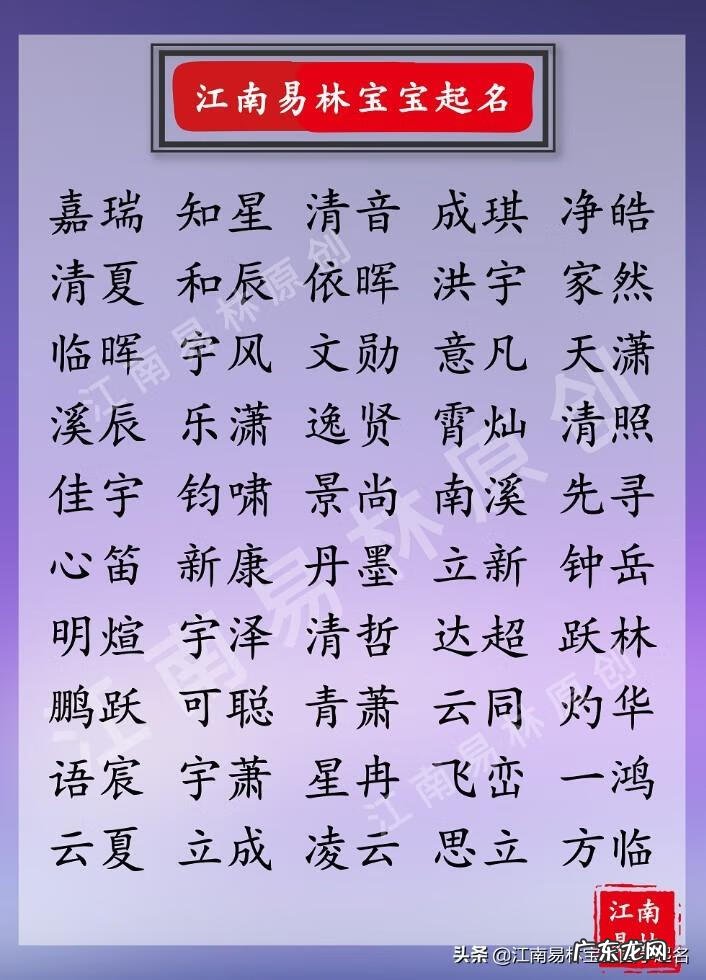 江南易林宝宝起名
嘉瑞 知星 清音 成琪 净皓
清夏 和辰 依晖 洪宇 家然
临晖 宇风 文勋 意凡 天潇
溪辰 乐潇 逸贤 霄灿 清照
佳宇 钧啸 景尚 南溪 先寻
心笛 新康 丹墨 立新 钟岳
明煊 宇泽 清哲 达超 跃林
鹏跃 可聪 青萧 云同 灼华
语宸 宇萧 星冉 飞峦 一鸿
云夏 立成 凌云 思立 方临
江南易林原创
江南易林原创
江南易林原创
江南
头条 @江南易林宝
起名
广东龙网